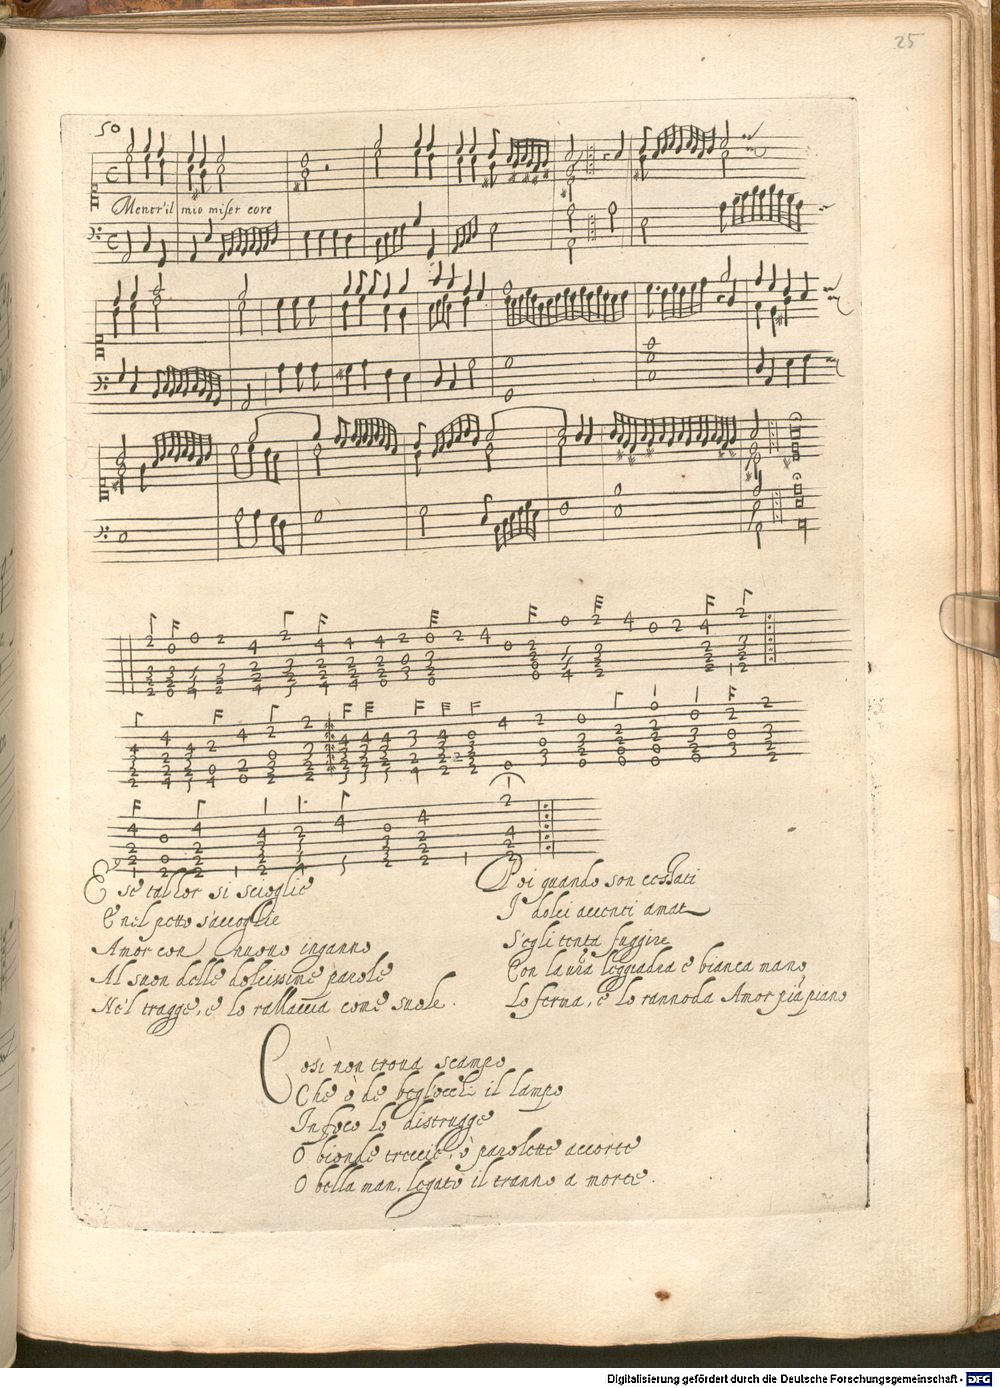 25
50
Mentr'il mio miser core
E se tallor si scioglie
E nel petto s'accoglie
Amor con nuouo inganno
Al suon delle dolcissime parole
Ne'l tragge, e lo rallaccia come suole.
Poi quando son cessati
I dolci accenti amat
S'egli tenta fuggire
Con la uĩa leggiadra e bianca mano
Lo ferma, e lo rannoda Amor pià piano
Così non troua scampo
Che ò de begl'occhi il lampo
In foco lo distrugge
O bionde treccie, ò parolette accorte
O bella man, legato il tranno a morte.
Digitalisierung gefördert durch die Deutsche Forschungsgemeinschaft - DFG